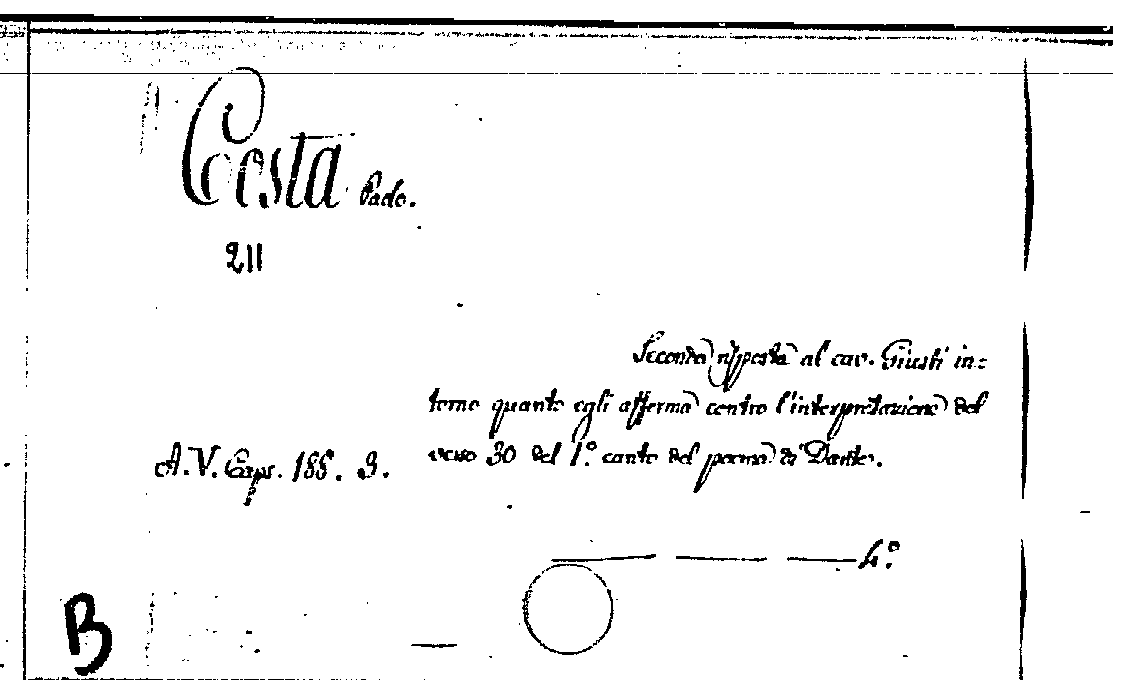 Costa Paolo.
211
Seconda risposta al cav. Giusti in=
torno quanto egli afferma contro l'interpretazione del
verso 30 del 1.º canto del poema di Dante.
A.V. Caps. 188. 3.
4.º
B